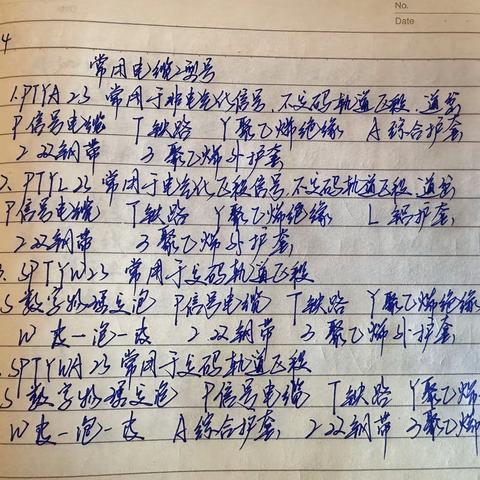 No.
Date
4
常用电缆型号
1.PTYA23 常用于非电气化信号,不发码轨道区段,道岔
P信号电缆 T铁路 Y聚乙烯绝缘 A综合护套
2双钢带 3聚乙烯外护套
2.PTYL23 常用于电气化区段信号,不发码轨道区段,道岔
P信号电缆 T铁路 Y聚乙烯绝缘 L铝护套
2双钢带 3聚乙烯外护套
3.SPTYW23 常用于发码轨道区段
S数字 P信号电缆 T铁路 Y聚乙烯绝缘
W皮一泡一皮 2双钢带 3聚乙烯外护套
.SPTYWA23 常用于发码轨道区段
S数字 P信号电缆 T铁路 Y聚乙烯
W皮一泡一皮 A综合护套 2双钢带 3聚乙烯